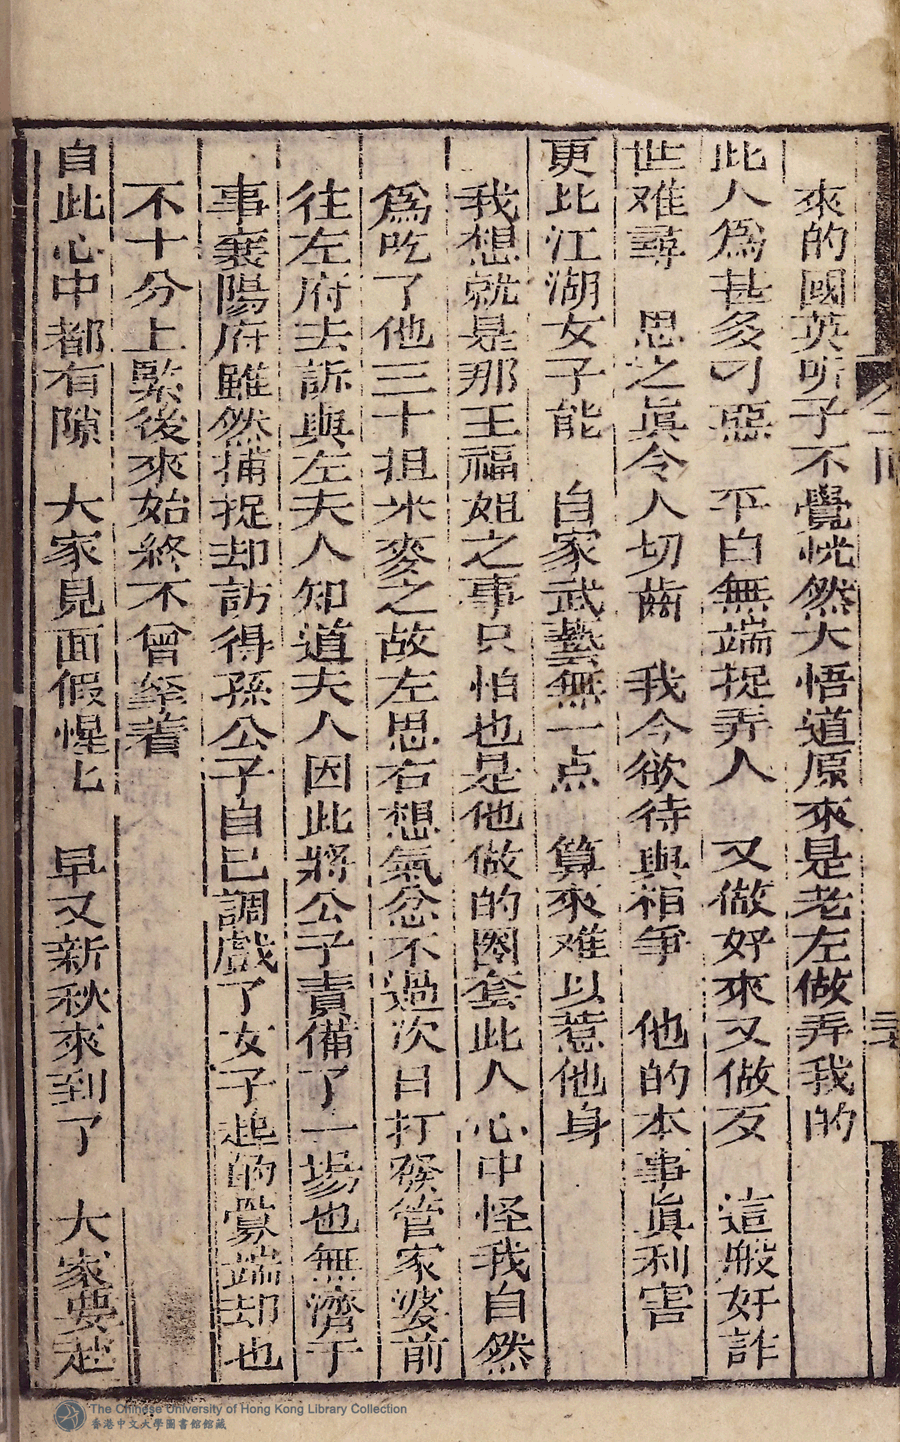 來的國英听了不覺恍然大悟道原來是老左做弄我的
此人爲甚多刁惡　平白無端捉弄人　又做好來又做歹　這般奸詐
世难尋　思之眞令人切齒　我今欲待與相爭　他的本事眞利害
更比江湖女子能　自家武藝無一点　算來难以惹他身
我想就是那王福姐之事只怕也是他做的圈套此人心中怪我自然
爲吃了他三十担米麥之故左思右想氣忿不過次日打發管家婆前
往左府去訴與左夫人知道夫人因此將公子責備了一場也無濟于
事襄陽府雖然捕捉却訪得孫公子自己調戲了女子起的釁端却也
不十分上緊後來始終不曾拏着
自此心中都有隙　大家見面假惺匕　早又新秋來到了　大家要赴
回
The Chinese University of Hong Kong Library Collection
香港中文大學圖書館館藏